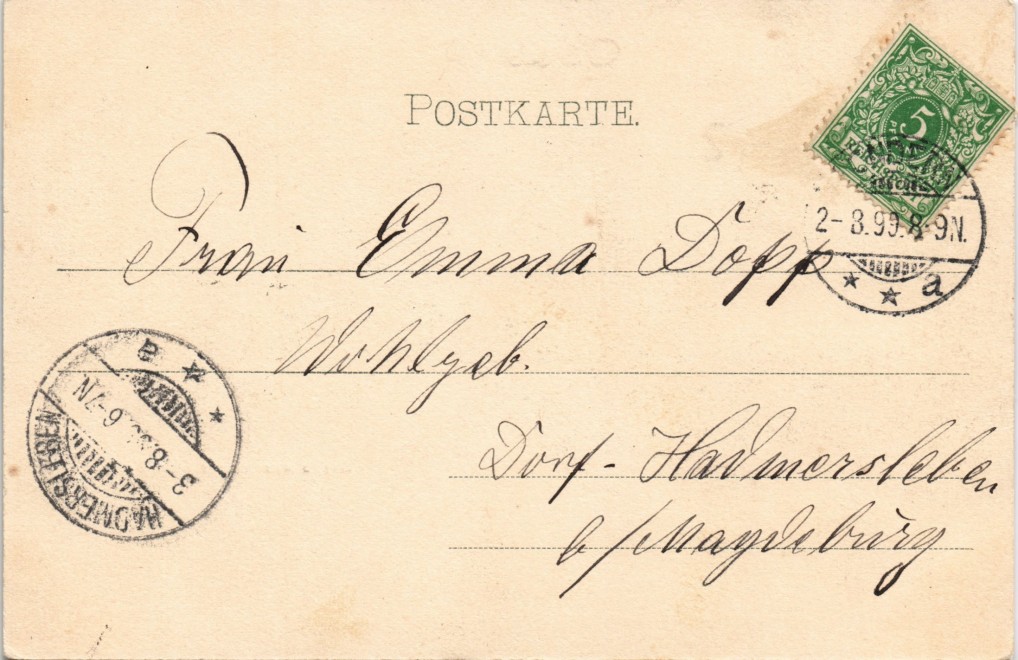 POSTKARTE.
5
2-8.99.8-9N.
* * a
Frau Emma Dopp
Wohlgeb.
Dorf-Hadmersleben
b/Magdeburg
HADMERSLEBEN
3-8.99. 6-7N
a * *